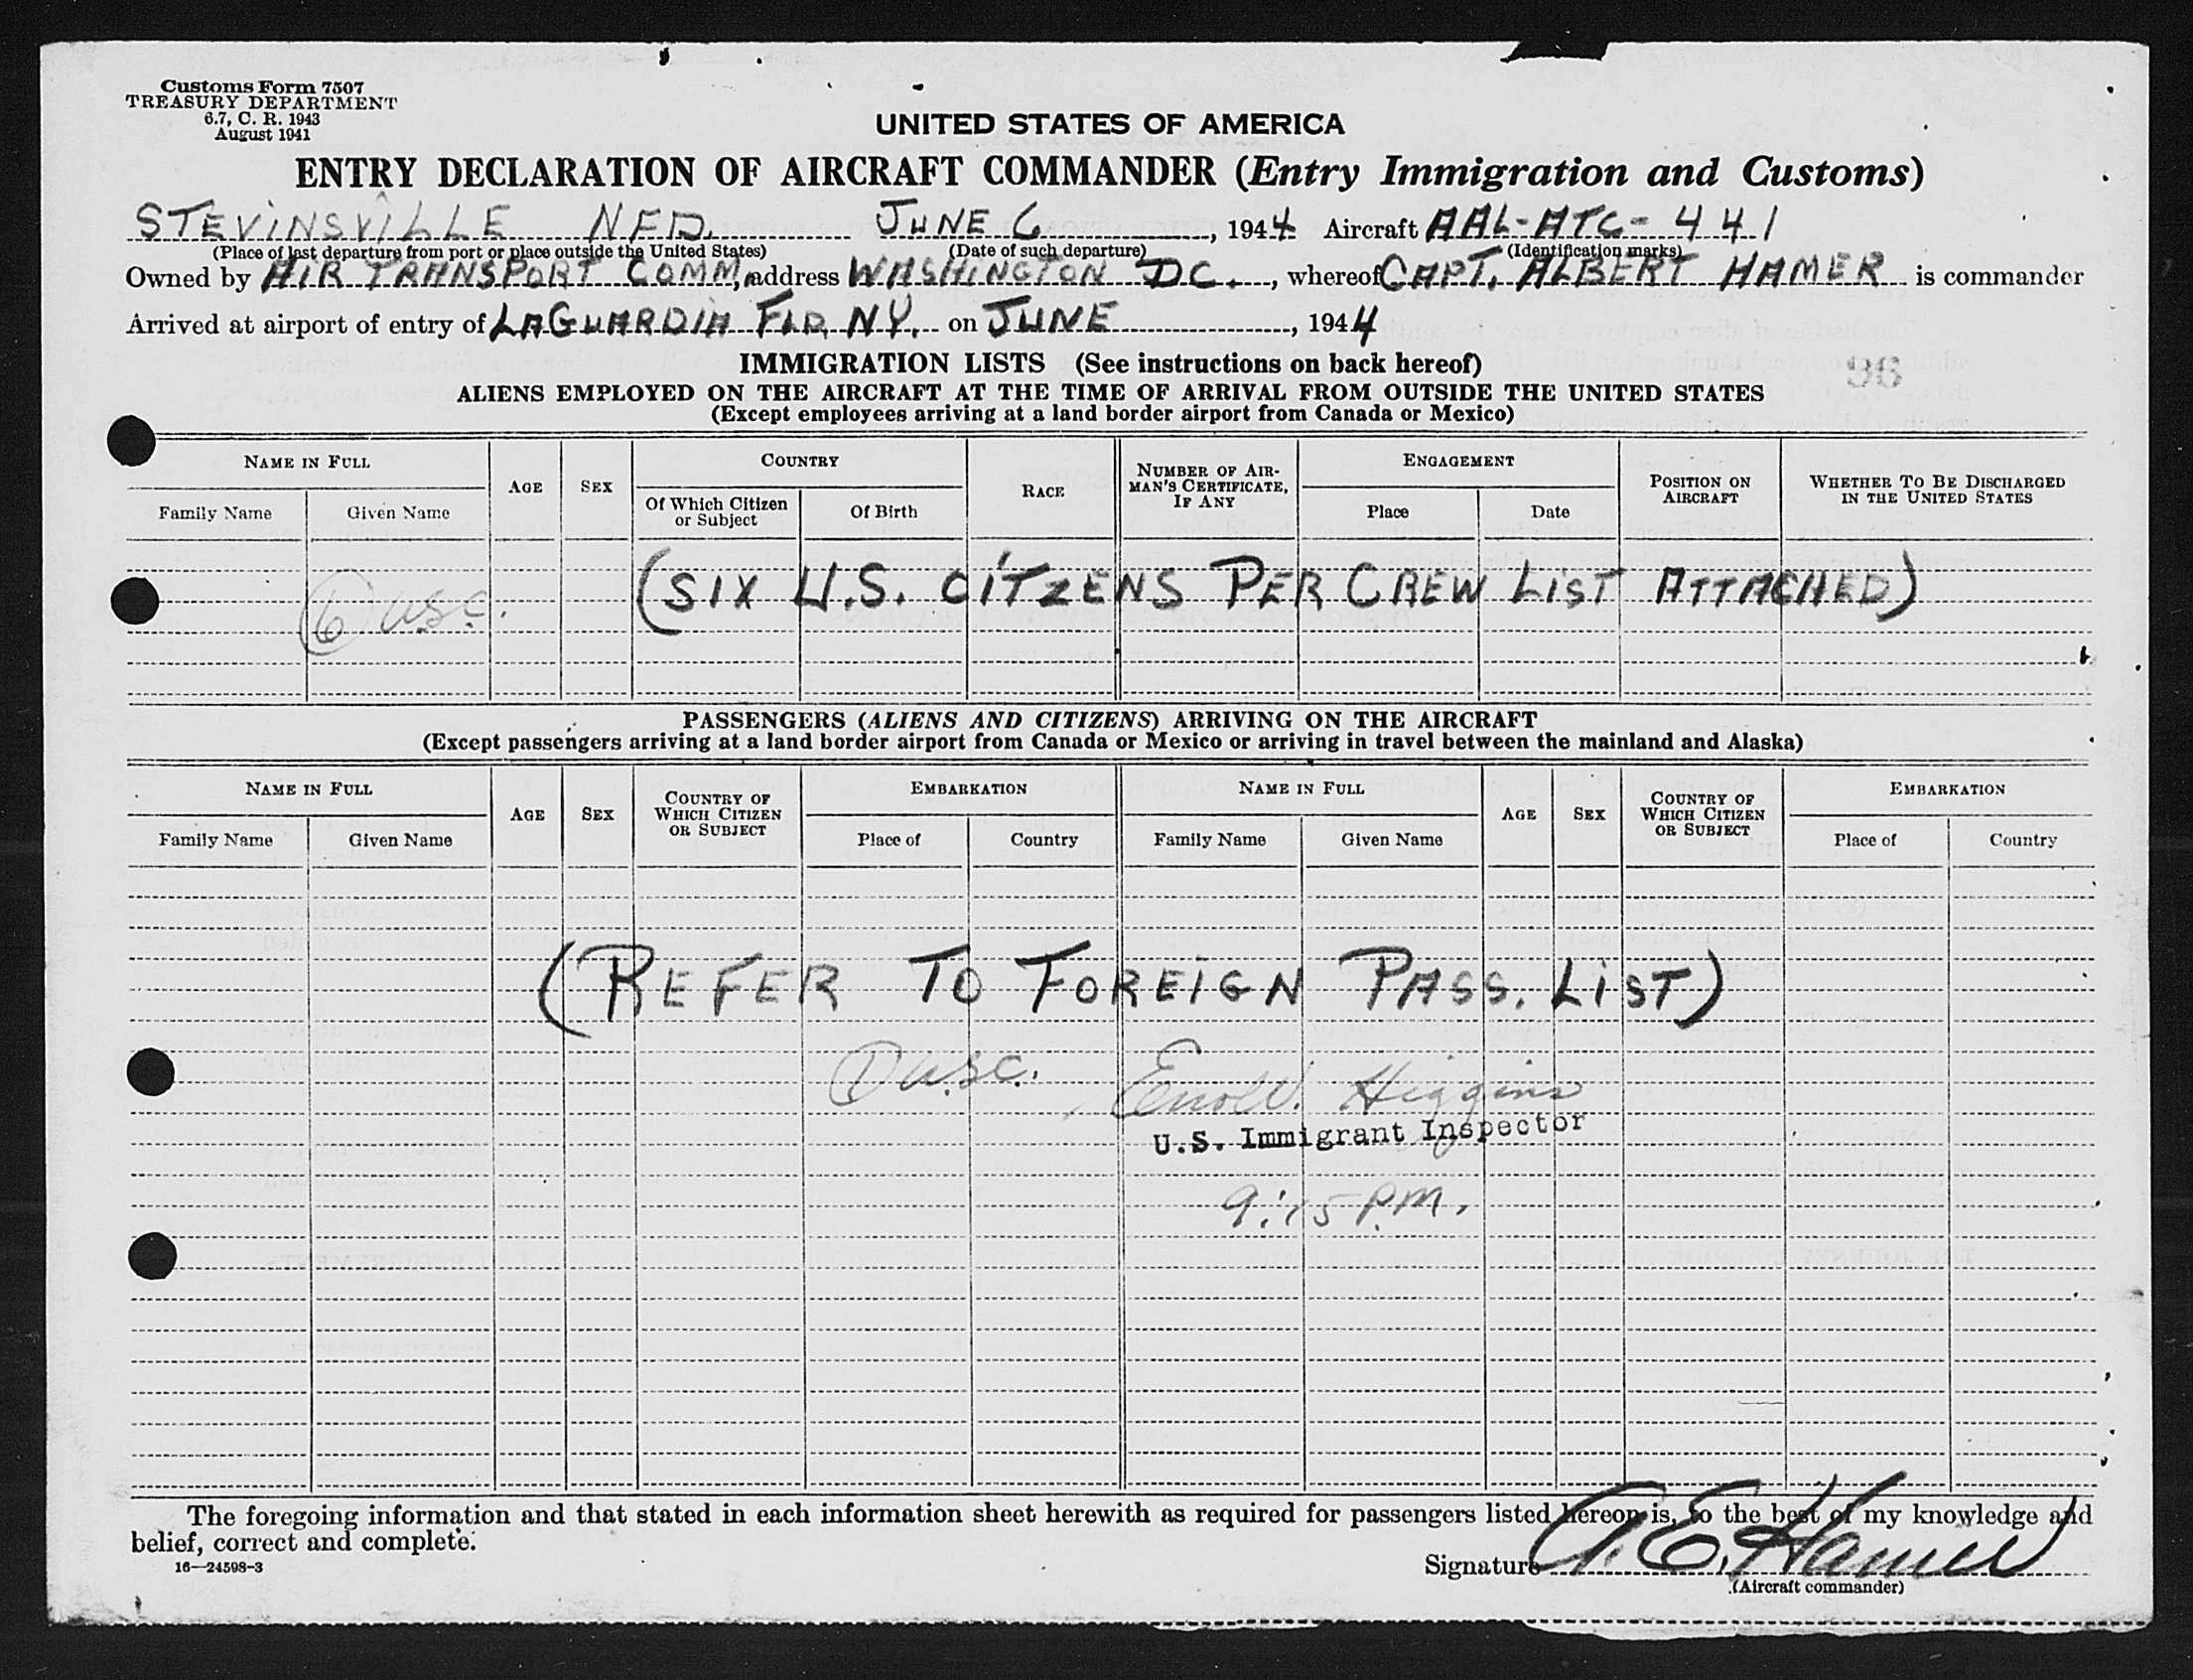 Customs Form 7507
TREASURY DEPARTMENT
6.7, C. R. 1943
August 1941
UNITED STATES OF AMERICA
ENTRY DECLARATION OF AIRCRAFT COMMANDER (Entry Immigration and Customs)
STEVINSVILLE NFD. JUNE 6, 1944 Aircraft AAL-ATC-441
(Place of last departure from port or place outside the United States) (Date of such departure) (Identification marks)
Owned by AIR TRANSPORT COMM, address WASHINGTON D.C., whereof CAPT. ALBERT HAMER is commander
Arrived at airport of entry of LAGUARDIA FLD. NY. on JUNE, 1944
IMMIGRATION LISTS (See instructions on back hereof)
96
ALIENS EMPLOYED ON THE AIRCRAFT AT THE TIME OF ARRIVAL FROM OUTSIDE THE UNITED STATES
(Except employees arriving at a land border airport from Canada or Mexico)
NAME IN FULL AGE SEX COUNTRY RACE NUMBER OF AIR-MAN'S CERTIFICATE, IF ANY ENGAGEMENT POSITION ON AIRCRAFT WHETHER TO BE DISCHARGED IN THE UNITED STATES
Family Name Given Name Of Which Citizen or Subject Of Birth Place Date
(6) U.S.C. (SIX U.S. CITZENS PER CREW LIST ATTACHED)
PASSENGERS (ALIENS AND CITIZENS) ARRIVING ON THE AIRCRAFT
(Except passengers arriving at a land border airport from Canada or Mexico or arriving in travel between the mainland and Alaska)
NAME IN FULL AGE SEX COUNTRY OF WHICH CITIZEN OR SUBJECT EMBARKATION NAME IN FULL AGE SEX COUNTRY OF WHICH CITIZEN OR SUBJECT EMBARKATION
Family Name Given Name Place of Country Family Name Given Name Place of Country
(REFER TO FOREIGN PASS. LIST)
(1) U.S.C. Higgins
U.S. Immigrant Inspector
9:15 P.M.
The foregoing information and that stated in each information sheet herewith as required for passengers listed hereon is, to the best of my knowledge and
belief, correct and complete.
16—24598-3
Signature A. E. Hamer
(Aircraft commander)